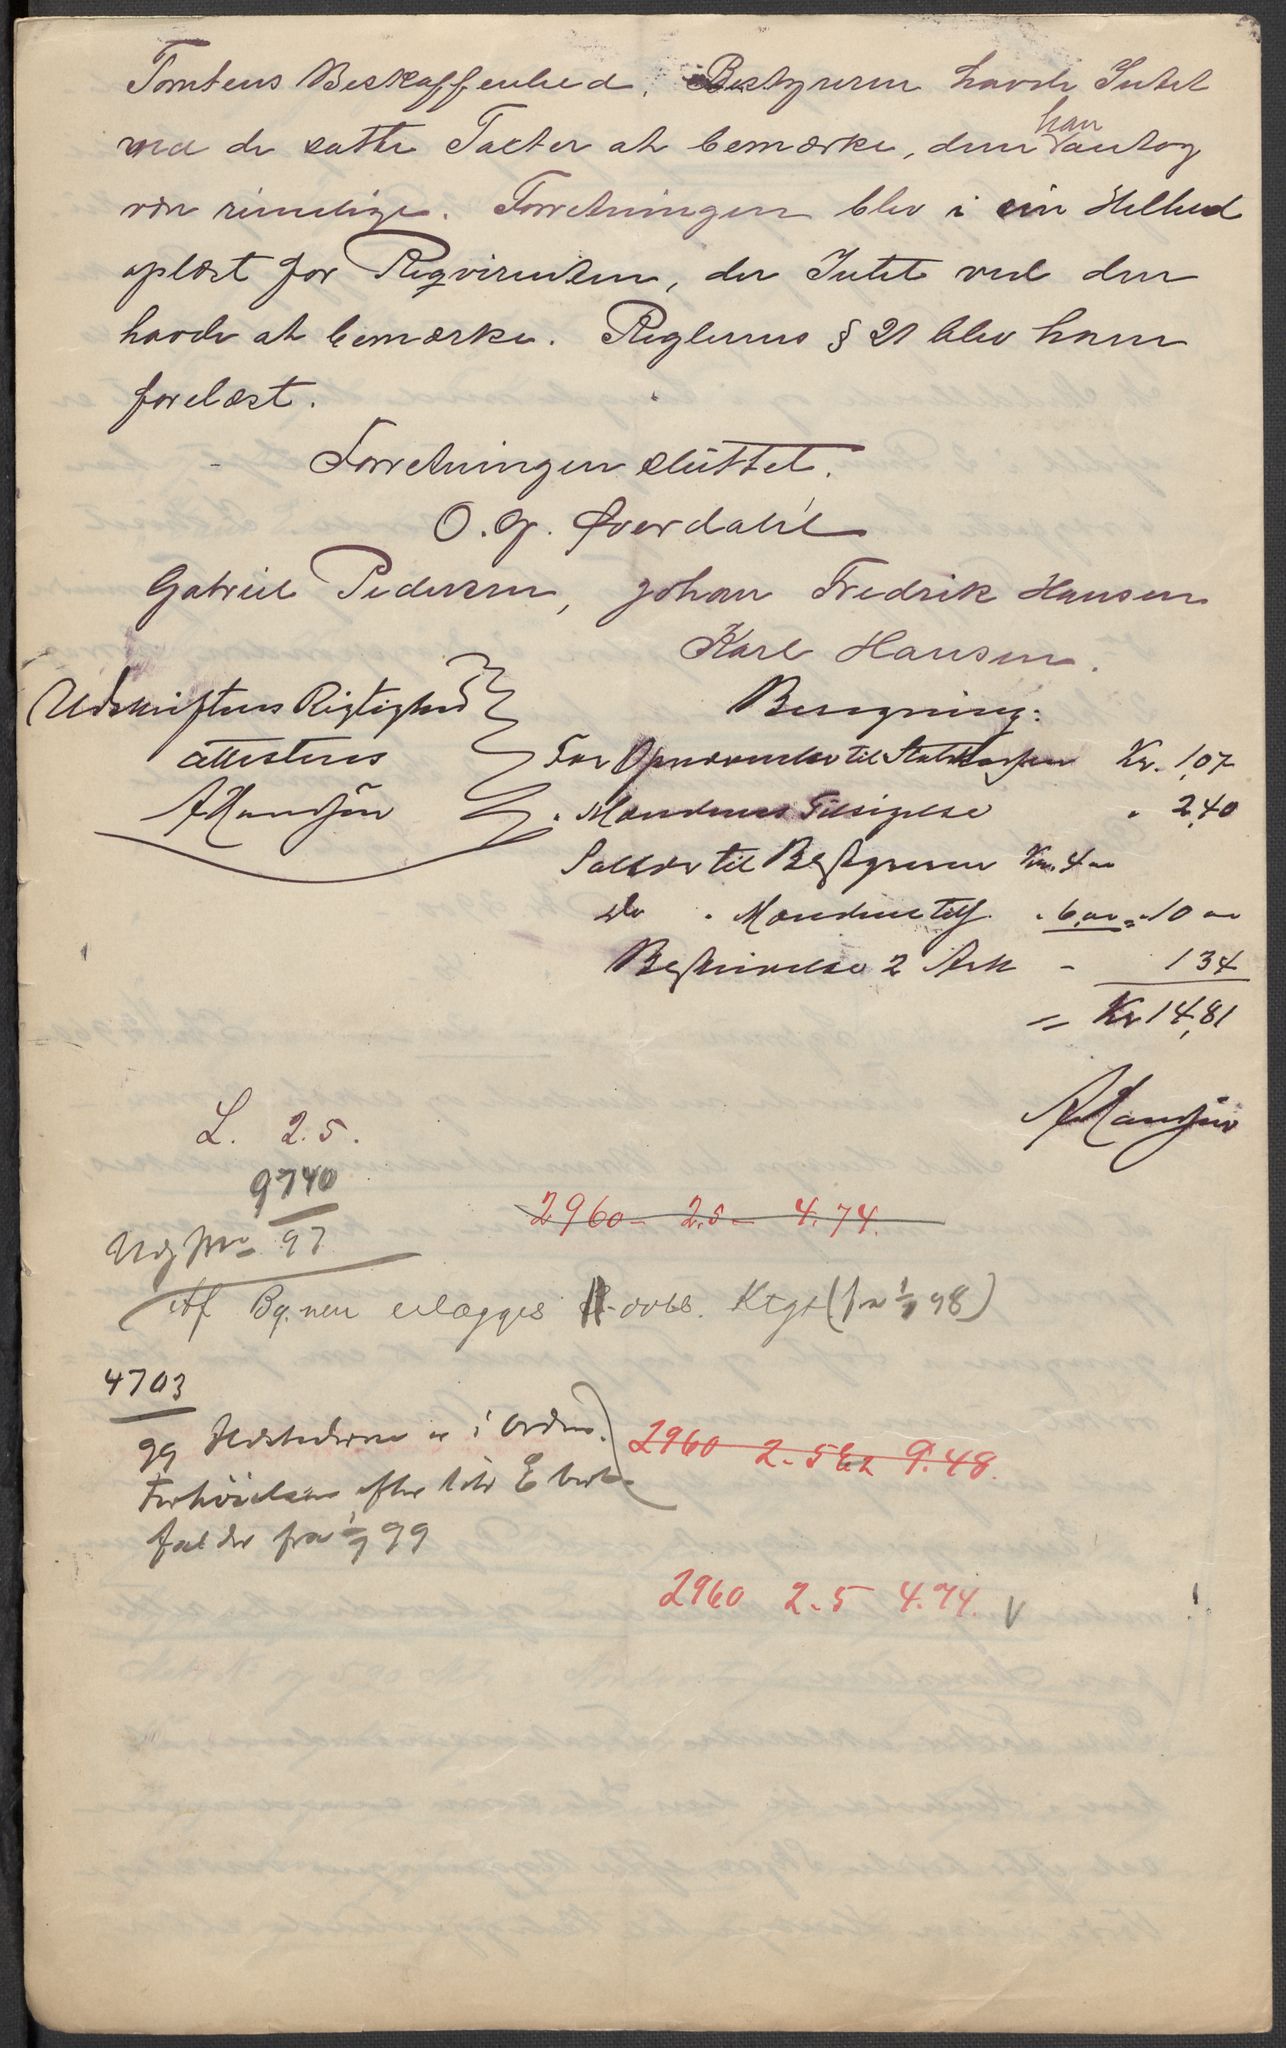 Tomtens Beskaffenhed. Bestyreren havde Intet
ved de satte Taxter at bemærke, dem han antog
vare rimelige. Forretningen blev i sin Helhed
oplæst for Reqvirenten, der Intet ved den
havde at bemærke. Reglernes § 21 blev ham
forelæst.
Forretningen sluttet.
O. G. Øverdahl
Gabriel Pedersen, Johan Fredrik Hansen
Karl Hansen.
Udskriftens Rigtighed
attesteres
Beregning:
For Opnævnelse til Statskassen Kr. 1,07
" Mændenes Tilsigelse " 2,40
Salær til Bestyreren Kr. 4 00
do " Mændene tils. " 6,00 = " 10 00
Beskrivelse 2 Ark - 1 34
= Kr 14,81
L. 2.5.
9740
97
2960 - 2.5 - 4.74.
Af Bg.nen erlægges dobb. Ktgt (fra 1/7 98)
4703
99 Ildstederne er i Orden.
Forhöielsen efter Litr E bort-
falder fra 1/7 99
2960 2.5 9.48.
2960 2.5 4.74. V